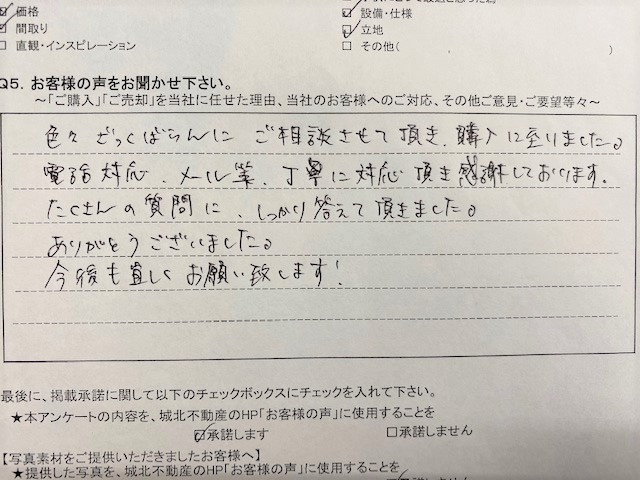 ☑ 価格
☑ 間取り
☐ 直観・インスピレーション
☑ 設備・仕様
☑ 立地
☐ その他( )
Q5. お客様の声をお聞かせ下さい。
～「ご購入」「ご売却」を当社に任せた理由、当社のお客様へのご対応、その他ご意見・ご要望等々～
色々 ざっくばらんに ご相談させて頂き、購入に至りました。
電話対応、メール等、丁寧に対応頂き感謝しております。
たくさんの質問に、しっかり答えて頂きました。
ありがとうございました。
今後も宜しくお願い致します!
最後に、掲載承諾に関して以下のチェックボックスにチェックを入れて下さい。
★本アンケートの内容を、城北不動産のHP「お客様の声」に使用することを
☑承諾します ☐承諾しません
【写真素材をご提供いただきましたお客様へ】
★提供した写真を、城北不動産のHP「お客様の声」に使用することを